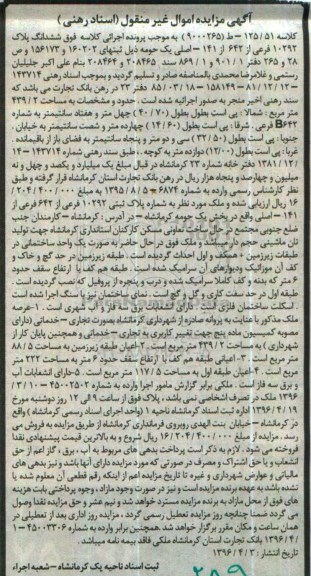 آگهی مزایده اموال غیر منقول (اسناد رهنی)
کلاسه ۵۱ /۱۲۵ – ط (۹۰۰۲۶۵) به موجب پرونده اجرائی کلاسه فوق ششدانگ پلاک
۱۰۲۹۲ فرعی از ۶۴۲ از ۱۴۱ – اصلی یک حومه ذیل ثبتهای ۱۶۰۲۰۲ و ۱۵۶۱۷۳ ص
۲۸ و ۲۶۵ دفتر ۹۰۱/۱ و ۸۶۹/۱ سند ۲۰۸۴۶۵ و ۲۰۸۴۶۴ بنام علی اکبر جلیلیان
رستمی و غلامرضا محمدی بالمناصفه صادر و تسلیم گردید و بموجب اسناد رهنی ۱۴۳۷۱۴
– ۸۱/۱۲/۱۲ و ۱۵۸۱۴۹ – ۸۵/۰۳/۱۸ دفتر ۲۳ در رهن بانک تجارت می باشد که
سند رهنی اخیر منجر به صدور اجرائیه شده است. حدود و مشخصات به مساحت ۴۳۹/۲
متر مربع : شمالا : پی است بطول بطول (۴۰/۷۰) چهل متر و هفتاد سانتیمتر به شماره
۶۴۳B فرعی . شرقا : پی است بطول (۱۴/۶۰) چهارده متر و شصت سانتیمتر به خیابان .
جنوبا : پی است بطول (۳۲/۵۰) سی و دو متر و پنجاه سانتیمتر به فضای باز از باقیمانده .
غربا : پی است بطول (۱۲/۰۰) دوازده متر به کوچه . طبق سند رهنی شماره ۱۴۳۷۱۴ – ۱۲
/۱۳۸۱/۱۲ دفتر خانه شماره ۲۳ کرمانشاه در قبال مبلغ یک میلیارد و یکصد و چهل و نه
میلیون و چهارصد و پنجاه هزار ریال در رهن بانک تجارت استان کرمانشاه قرار گرفته و طبق
نظر کارشناس رسمی وارده به شماره ۶۸۷۴ – ۱۳۹۵/۸/۵ به مبلغ ۲۰۴/۴۰۰/۰۰۰/
۱۶ ریال ارزیابی شده و ملک مورد نظر به شماره پلاک ثبتی ۱۰۲۹۲ فرعی از ۶۴۲ فرعی از
۱۴۱ – اصلی واقع در بخش یک حومه کرمانشاه – در آدرس : کرمانشاه – کارمندان جنب
ضلع جنوبی مجتمع در حال ساخت تعاونی مسکن کارکنان استانداری کرمانشاه جهت تولید
نان ماشینی حجم دار میباشد و ملک فوق در حال حاضر به صورت یک واحد ساختمانی در
طبقات زیرزمین ، همکف و اول احداث گردیده است . طبقه زیرزمین در حد گچ و خاک و
کف آن موزائیک ودیوارهای آن سرامیک شده است . طبقه هم کف با ارتفاع سقف حدود
۶ متر که بدنه و کف کاملا سرامیک شده و درب و پنجره از پروفیل که نصب گردیده است .
طبقه اول در حد سفت کاری و گل و گچ است . نمای ساختمان نیز با سنگ اجرا شده است
. اسکلت ساختمان فلزی است . دارای انشعابات برق سه فاز و آب شهری است . ۱-عرصه
ملک مذکور با عنایت به پروانه صادره از شهرداری کرمانشاه بصورت تجاری – خدماتی (دارای
مصوبه کمیسیون ماده پنج جهت تغییر کاربری به تجاری – خدماتی و همچنین پایان کار از
شهرداری ) به مساحت ۴۳۹/۲ متر مربع است . ۲-اعیان طبقه زیرزمین به مساحت ۸۸/۵
متر مربع است . ۳-اعیانی طبقه هم کف با ارتفاع سقف حدود ۶ متر به مساحت ۲۲۲ متر
مربع است . ۴-اعیان طبقه اول به مساحت ۱۱۷/۵ متر مربع است . ۵-دارای انشعابات آب
و برق سه فاز است . ملکی برابر گزارش مامور اجرا وارده به شماره ۴۵۰۰۲۵۰۲ – ۱۰/۳/
۱۳۹۶ ملک در تصرف اشخاصی نمی باشد ، پلاک فوق از ساعت ۹ الی ۱۲ روز دوشنبه مورخ
۱۳۹۶/۴/۱۹ اداره ثبت اسناد کرمانشاه ناحیه ۱ (واحد اجرای اسناد رسمی کرمانشاه) واقع
در کرمانشاه – خیابان بنت الهدی روبروی فرمانداری کرمانشاه از طریق مزایده به فروش می
رسد . مزایده از مبلغ ۱۶/۲۰۴/۴۰۰/۰۰۰ ریال شروع و به بالاترین قیمت پیشنهادی نقدا
فروخته می شود . لازم به ذکر است پرداخت بدهی های مربوط به آب ، برق ، گاز اعم از حق
انشعاب و یا حق اشتراک و مصرف در صورتی که مورد مزایده دارای آنها باشد و نیز بدهی های
مالیاتی و عوارض شهرداری و غیره تا تاریخ مزایده اعم از اینکه رقم قطعی آن معلوم شده یا
نشده باشد به عهده برنده مزایده است و نیز در صورت وجود مازاد ، وجوه پرداختی بابت هزینه
های فوق از محل مازاد به برنده مزایده مسترد خواهد شد و نیم عشر و حق مزایده نقدا وصول
می گردد ضمنا چنانچه روز مزایده تعطیل رسمی گردد ، مزایده روز اداری بعد از تعطیلی در
همان ساعت و مکان مقرر برگزار خواهد شد .همچنین برابر وارده به شماره ۴۵۰۰۳۳۰۶ – ۱
/۱۳۹۶/۴ بانک تجارت استان کرمانشاه ملکی فاقد بیمه نامه میباشد.
تاریخ انتشار : ۱۳۹۶/۴/۳
ثبت اسناد ناحیه یک کرمانشاه – شعبه اجراء